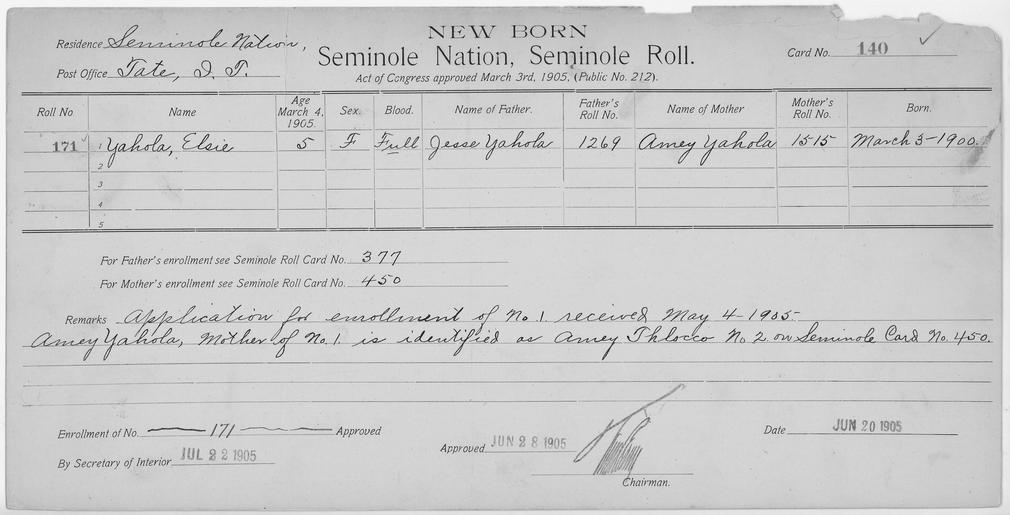 NEW BORN
Residence Seminole Nation,
Seminole Nation, Seminole Roll.
Card No. 140
Post Office Tate, I. T.
Act of Congress approved March 3rd, 1905, (Public No. 212).
Roll No Name Age March 4, 1905. Sex. Blood. Name of Father. Father's Roll No. Name of Mother Mother's Roll No. Born.
171 1 Yahola, Elsie 5 F Full Jesse Yahola 1269 Amey Yahola 1515 March 3-1900.
2
3
4
5
For Father's enrollment see Seminole Roll Card No. 377
For Mother's enrollment see Seminole Roll Card No. 450
Remarks Application for enrollment of No. 1 received May 4-1905-
Amey Yahola, Mother of No. 1. is identified as Amey Thlocco No 2. on Seminole Card No. 450.
Enrollment of No. 171 Approved
By Secretary of Interior JUL 22 1905
Approved JUN 28 1905
Chairman.
Date JUN 20 1905